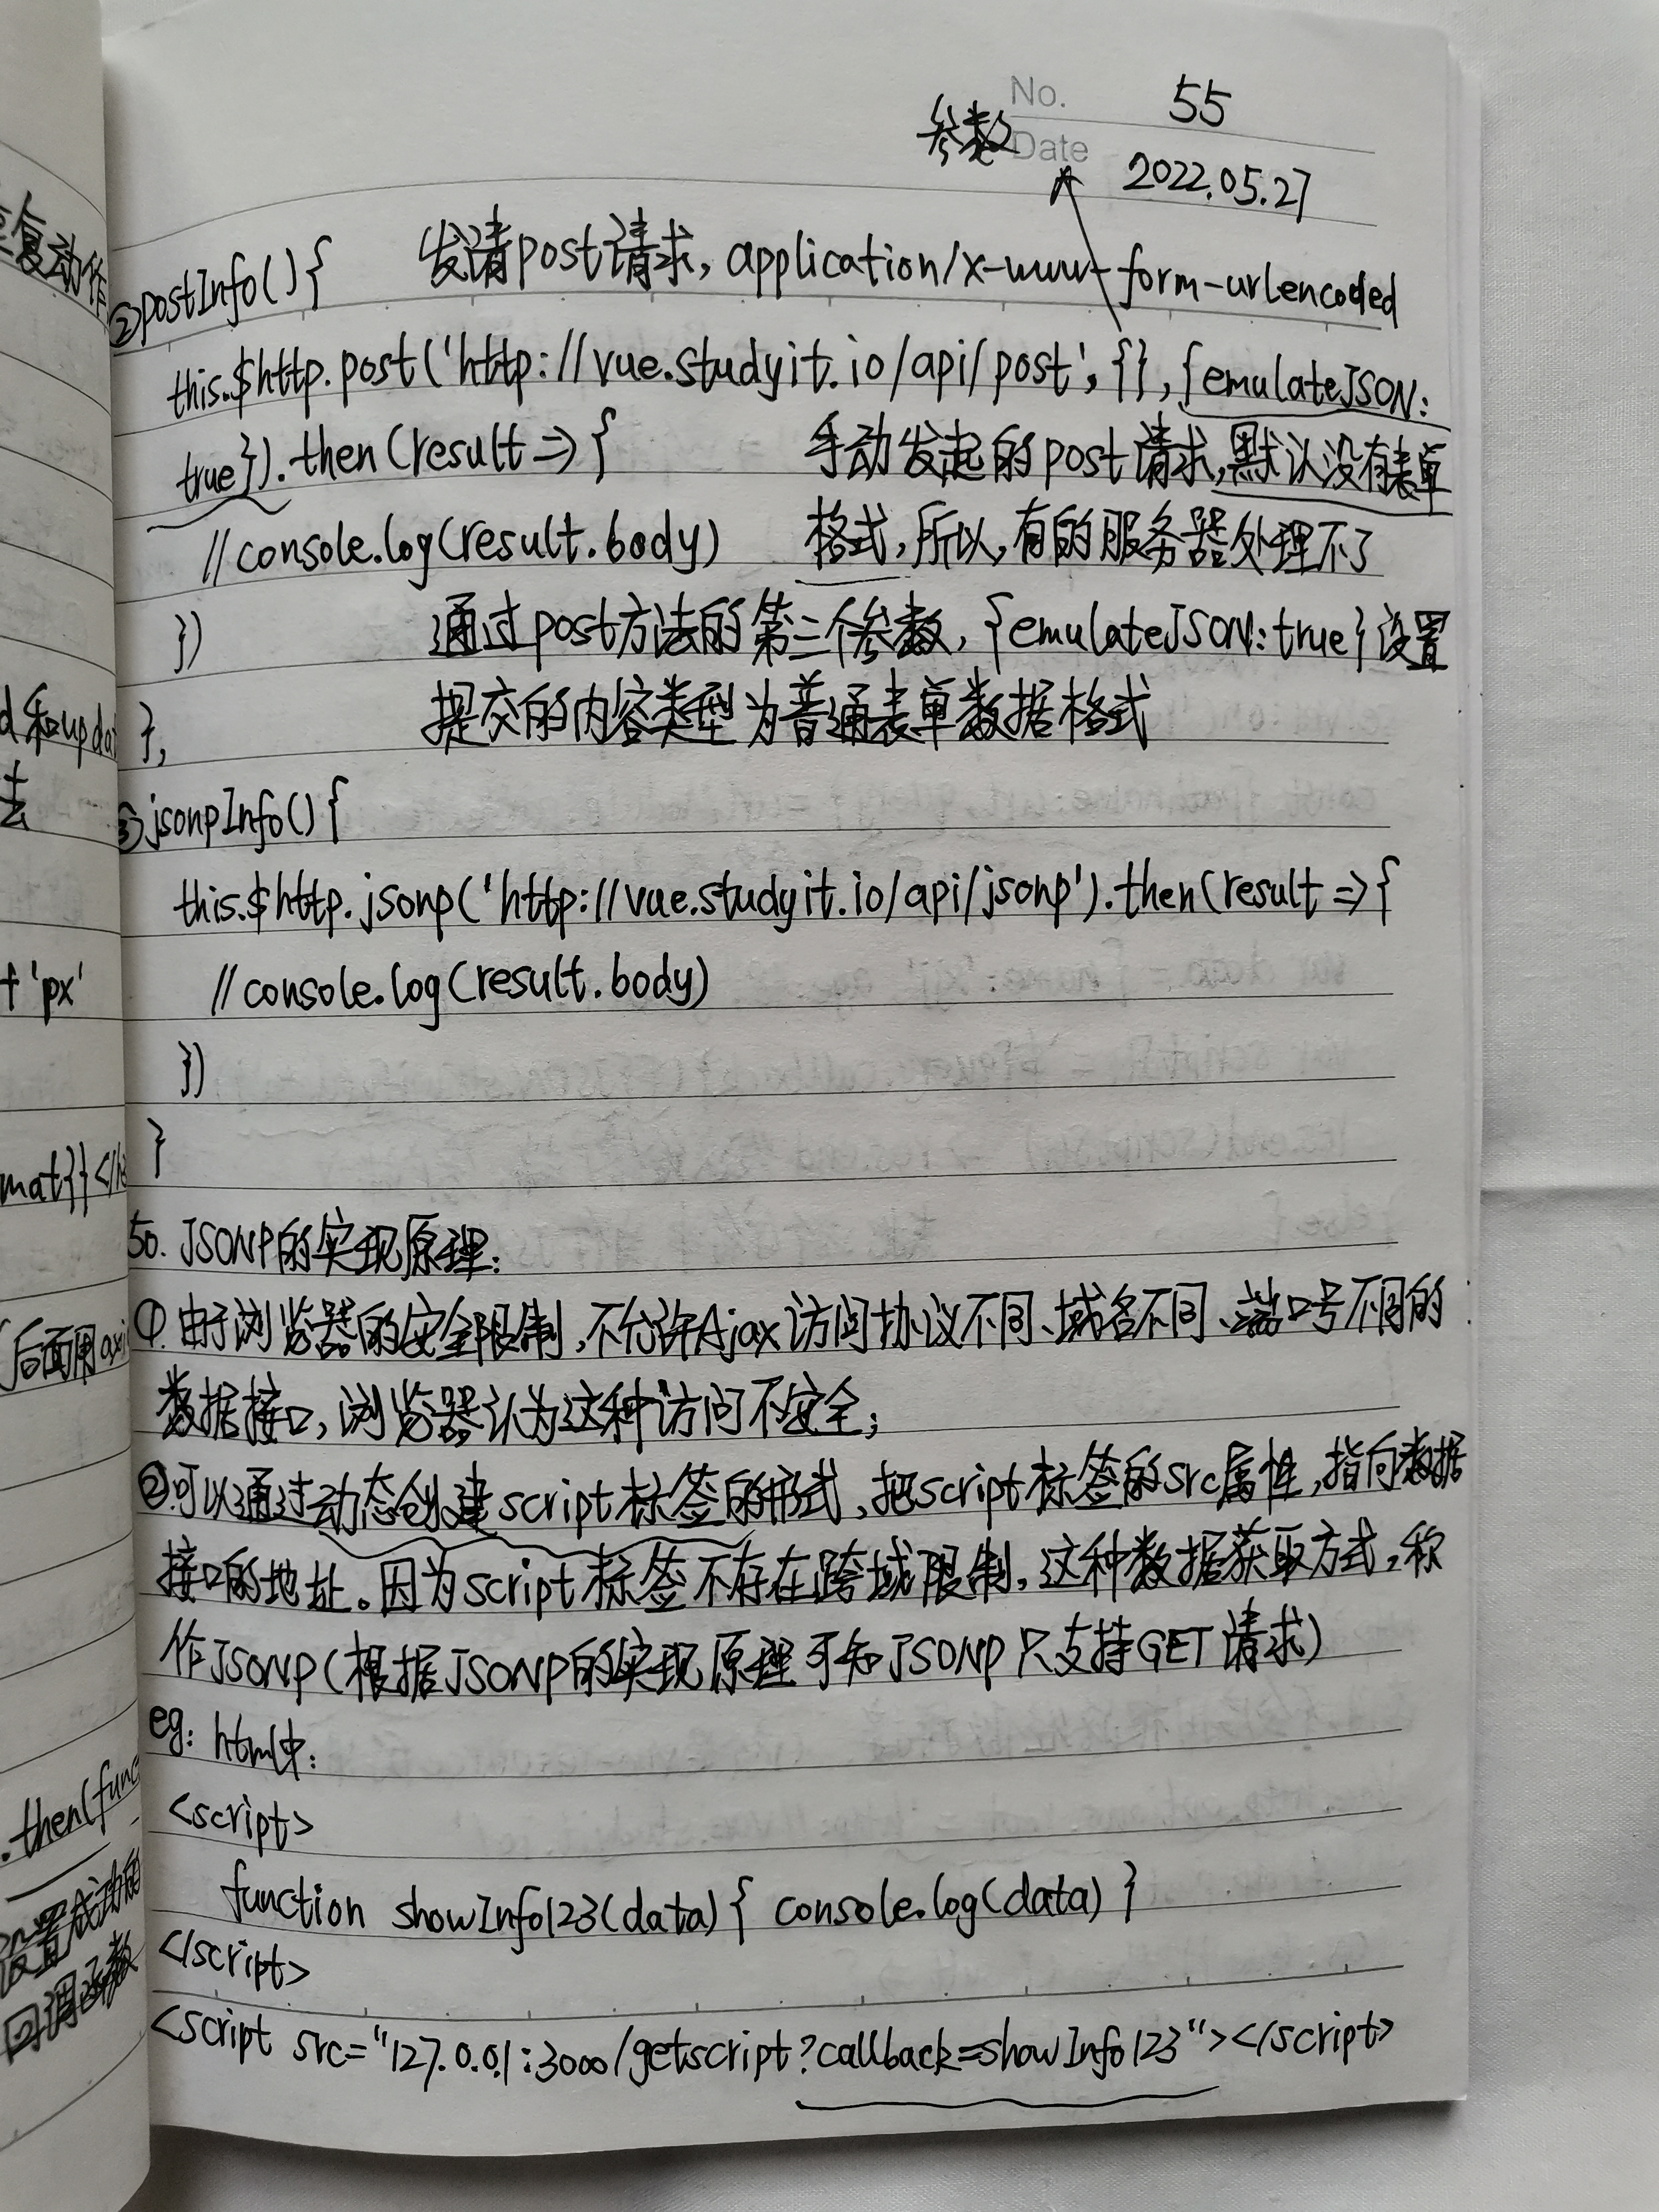 No. 55
参数
Date 2022.05.27
②postInfo(){ 发请post请求, application/x-www-form-urlencoded
this.$http.post('http://vue.studyit.io/api/post', {}, {emulateJSON:
true}).then(result => { 手动发起的post请求,默认没有表单
//console.log(result.body) 格式,所以,有的服务器处理不了
}) 通过post方法的第三个参数, {emulateJSON:true}设置
}, 提交的内容类型为普通表单数据格式
③jsonpInfo(){
this.$http.jsonp('http://vue.studyit.io/api/jsonp').then(result => {
//console.log(result.body)
})
}
50. JSONP的实现原理:
①由于浏览器的安全限制,不允许Ajax访问协议不同、域名不同、端口号不同的
数据接口,浏览器认为这种访问不安全;
②可以通过动态创建script标签的形式,把script标签的src属性,指向数据
接口的地址。因为script标签不存在跨域限制,这种数据获取方式,称
作JSONP(根据JSONP的实现原理可知JSONP只支持GET请求)
eg: html中:
<script>
function showInfo123(data){ console.log(data) }
</script>
<script src="127.0.0.1:3000/getscript?callback=showInfo123"></script>
复动作
d和updat
法
+'px'
mat}}</h
后面用axi
.then(func
设置成功的
回调函数